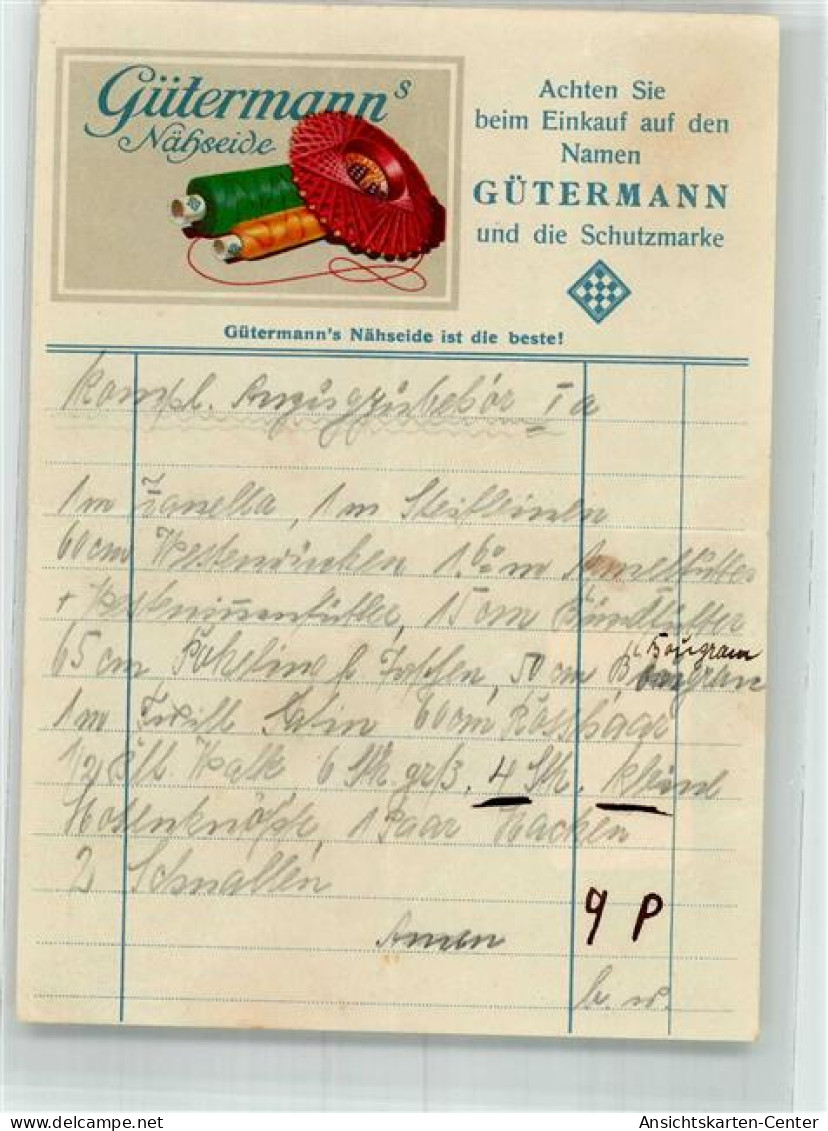 Gütermann's
Nähseide
Achten Sie
beim Einkauf auf den
Namen
GÜTERMANN
und die Schutzmarke
Gütermann's Nähseide ist die beste!
Kompl. Anzugzubehör Ia
1 m Zanella, 1 m Steifleinen
60 cm Westenrücken 1,60 m Ärmelfutter
+ Westeninnenfutter, 15 cm Bundfutter
Bougram
65 cm f. 50 cm
1 m Twill Satin 60 cm Rosshaar
1/2 Watte, 6 Stk. grß. 4 Stk. klein
Hosenknöpfe, 1 Paar Hacken
2 Schnallen
9 P
b. w.
oldthing.de
Ansichtskarten-Center